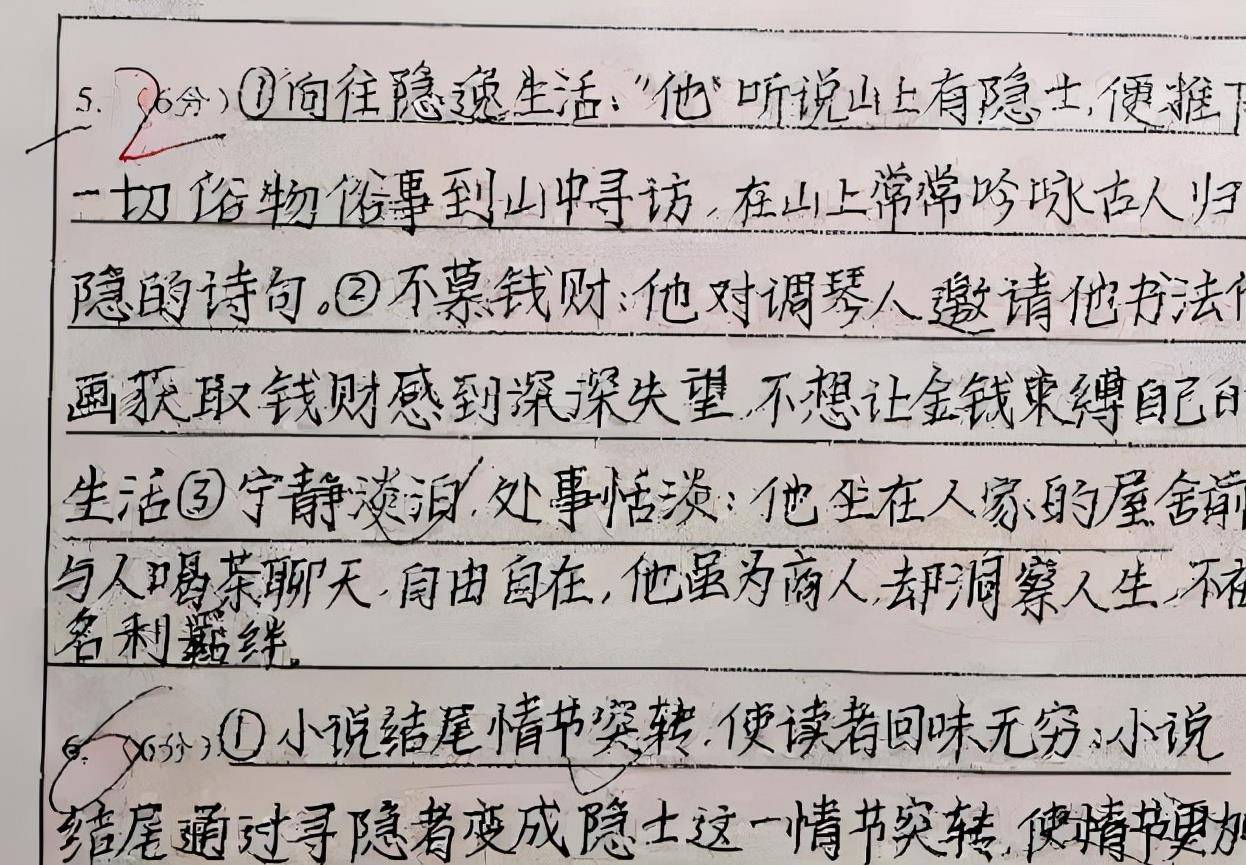 5. 2 (6分) ①向往隐逸生活:"他"听说山上有隐士,便推下
一切俗物俗事到山中寻访,在山上常常吟咏古人归
隐的诗句。②不慕钱财:他对调琴人邀请他书法作
画获取钱财感到深深失望,不想让金钱束缚自己的
生活③宁静淡泊,处事恬淡:他坐在人家的屋舍前
与人喝茶聊天,自由自在,他虽为商人,却洞察人生,不被
名利羁绊。
6. (6分) ①小说结尾情节突转,使读者回味无穷;小说
结尾通过寻隐者变成隐士这一情节突转,使情节更加